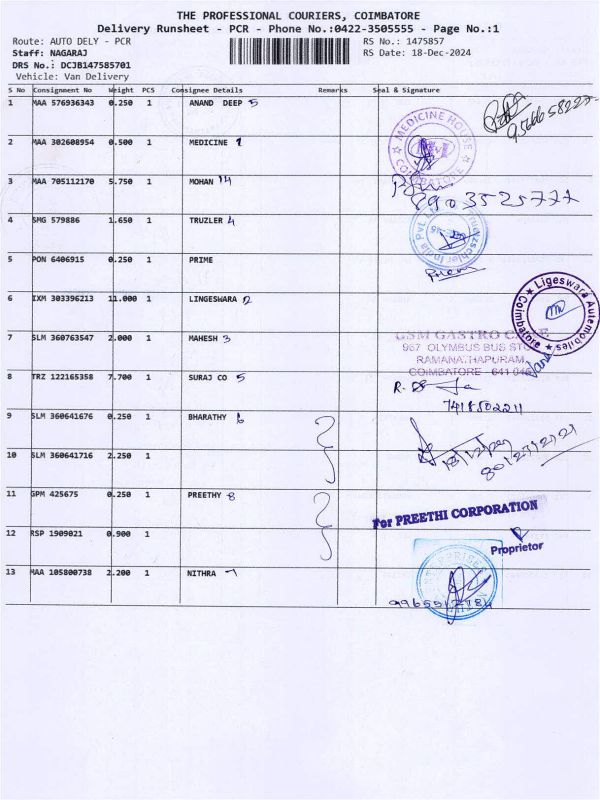 THE PROFESSIONAL COURIERS, COIMBATORE
Delivery Runsheet - PCR - Phone No.:0422-3505555 - Page No.:1
Route: AUTO DELY - PCR RS No.: 1475857
Staff: NAGARAJ RS Date: 18-Dec-2024
DRS No.: DCJB147585701
Vehicle: Van Delivery
S No Consignment No Weight PCS Consignee Details Remarks Seal & Signature
1 MAA 576936343 0.250 1 ANAND DEEP 5
2 MAA 302608954 0.500 1 MEDICINE 1
MEDICINE HOUSE COIMBATORE
3 MAA 705112170 5.750 1 MOHAN 14
8903525777
4 SMG 579886 1.650 1 TRUZLER 4
India Pvt.
5 PON 6406915 0.250 1 PRIME
6 IXM 303396213 11.000 1 LINGESWARA 12
Ligeswara Automobiles Coimbatore
7 SLM 360763547 2.000 1 MAHESH 3
GSM GASTRO CARE
957 OLYMBUS BUS STOP
RAMANATHAPURAM,
COIMBATORE - 641 045
8 TRZ 122165358 7.700 1 SURAJ CO 5
7418802211
9 SLM 360641676 0.250 1 BHARATHY 6
10 SLM 360641716 2.250 1
11 GPM 425675 0.250 1 PREETHY 8
For PREETHI CORPORATION
Proprietor
12 RSP 1909021 0.900 1
13 MAA 105800738 2.200 1 NITHRA 7